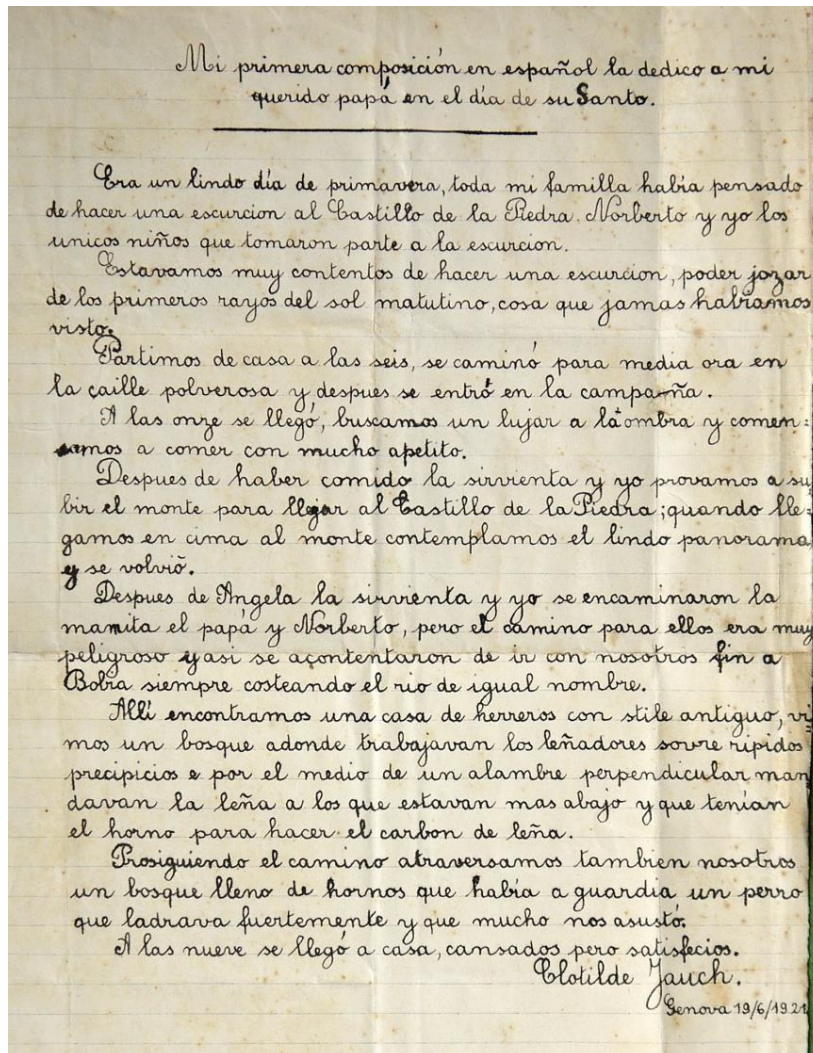 Mi primera composición en español la dedico a mi
querido papá en el día de su Santo.
Era un lindo día de primavera, toda mi familla había pensado
de hacer una escurcion al Castillo de la Piedra. Norberto y yo los
unicos niños que tomaron parte a la escurcion.
Estavamos muy contentos de hacer una escurcion, poder jozar
de los primeros rayos del sol matutino, cosa que jamas habíamos
visto.
Partimos de casa a las seis, se caminó para media ora en
la caille polverosa y despues se entró en la campaña.
A las onze se llegó, buscamos un lujar a la ombra y comen=
samos a comer con mucho apetito.
Despues de haber comido la sirvienta y yo provamos a su
bir el monte para llegar al Castillo de la Piedra; quando lle=
gamos en cima al monte contemplamos el lindo panorama
y se volvió.
Despues de Angela la sirvienta y yo se encaminaron la
mamita el papá y Norberto, pero el camino para ellos era muy
peligroso y asi se acontentaron de ir con nosotros fin a
Bobra siempre costeando el rio de igual nombre.
Allí encontramos una casa de herreros con stile antiguo, vi=
mos un bosque adonde trabajavan los leñadores sovre ripidos
precipicios e por el medio de un alambre perpendicular man
davan la leña a los que estavan mas abajo y que tenían
el horno para hacer el carbon de leña.
Prosiguiendo el camino atraversamos tambien nosotros
un bosque lleno de hornos que había a guardia un perro
que ladrava fuertemente y que mucho nos asustó.
A las nueve se llegó a casa, cansados pero satisfecios.
Clotilde Jauch.
Genova 19/6/1921